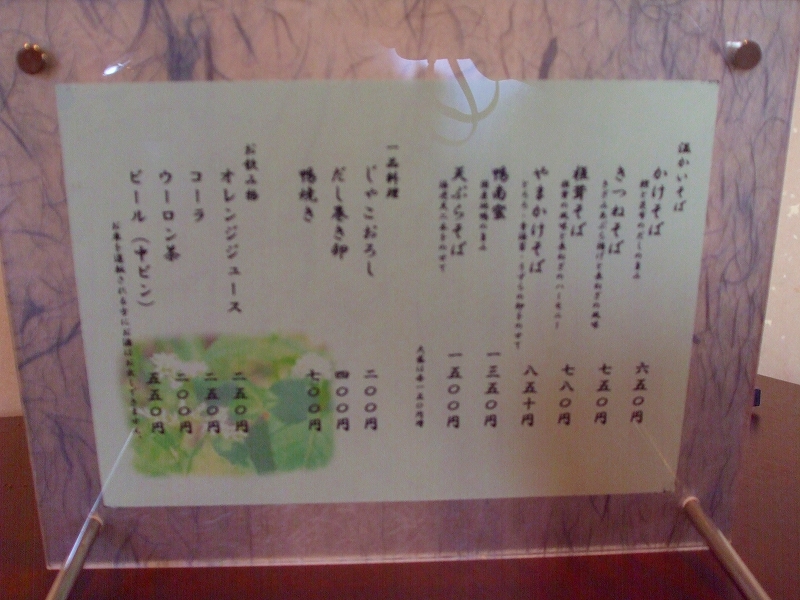 温かいそば
かけそば 六五〇円
きつねそば 七五〇円
椎茸そば 七八〇円
やまかけそば 八五十円
鴨南蛮 一三五〇円
天ぷらそば 一五〇〇円
一品料理
じゃこおろし 二〇〇円
だし巻き卵 四〇〇円
鴨焼き 七〇〇円
お飲み物
オレンジジュース 二五〇円
コーラ 二五〇円
ウーロン茶 二〇〇円
ビール（中ビン） 五五〇円
お車を運転される方にお酒はお出しできません。